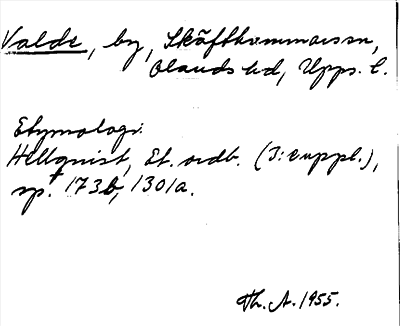 Valde, by, Skäfthammars sn,
Olands hd, Upps. l.
Etymologi.
Hellquist, Et. ordb. (3:e uppl.),
sp. 173b, 1301a.
Th. A. 1955.